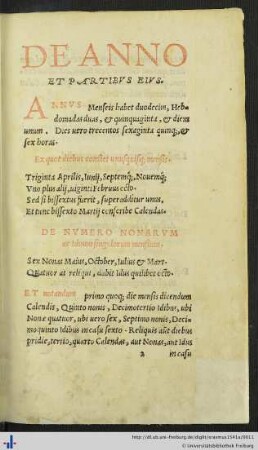 DE ANNO
ET PARTIBVS EIVS.
ANNVS Menseis habet duodecim, Heb-
domadas duas, & quinquaginta, & diem
unum. Dies uero trecentos sexaginta quinq;, &
sex horas.
Ex quot diebus constet unusquisq; mensis.
Triginta Aprilis, Iunij, Septemq́;, Nouemq́;
Vno plus alij, uiginti Februus octo.
Sed si bissextus fuerit, superadditur unus,
Et tunc bissexto Martij conscribe Calendas.
DE NVMERO NONARVM
ac Iduum singulorum mensium.
Sex Nonas Maius, October, Iulius & Mart.
Quatuor at reliqui, dabit idus quilibet octo.
ET notandum primo quoq; die mensis dicendum
Calendis, Quinto nonis, Decimotertio idibus, ubi
Nonæ quatuor, ubi uero sex, Septimo nonis, Deci-
moquinto Idibus in casu sexto. Reliquis aūt diebus
pridie, tertio, quarto Calendas, aut Nonas, aut Idus
2 in casu
http://dl.ub.uni-freiburg.de/diglit/erasmus1541a/0011
© Universitätsbibliothek Freiburg